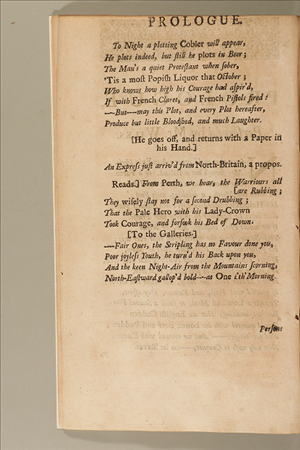 PROLOGUE.
To Night a plotting Cobler will appear,
He plots indeed, but still he plots in Beer;
The Man's a quiet Protestant when sober,
'Tis a most Popish Liquor that October;
Who knows how high his Courage had aspir'd,
If with French Claret, and French Pistols fired?
—But—may this Plot, and every Plot hereafter,
Produce but little Bloodshed, and much Laughter.
[He goes off, and returns with a Paper in
his Hand.]
An Express just arriv'd from North-Britain, a propos.
Reads.] From Perth, we hear, the Warriours all
[are Rubbing;
They wisely stay not for a second Drubbing;
That the Pale Hero with his Lady-Crown
Took Courage, and forsook his Bed of Down.
[To the Galleries.]
—Fair Ones, the Stripling has no Favour done you,
Poor joyless Youth, he turn'd his Back upon you,
And the keen Night-Air from the Mountains scorning,
North-Eastward gallop'd bold—at One i'th Morning.
Persons